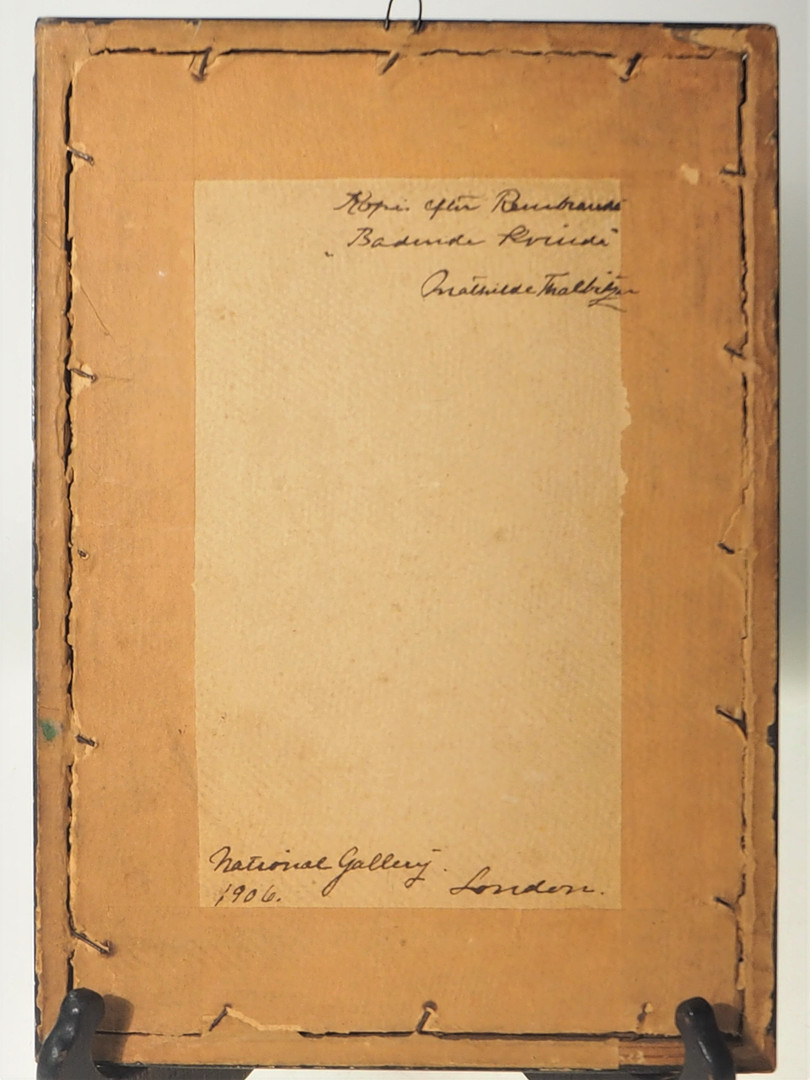 Kopi efter Rembrandt
"Badende Kvinde"
Mathilde Thalbitzer
National Gallery.
1906. London.